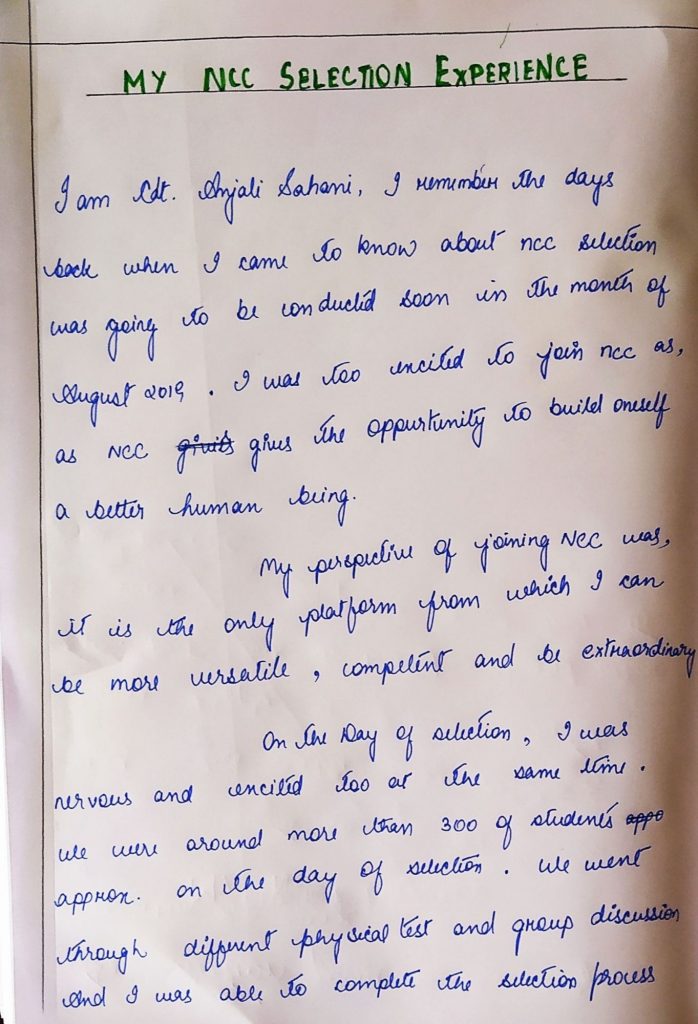 MY NCC SELECTION EXPERIENCE
I am Cdt. Anjali Sahani, I remember the days
back when I came to know about ncc selection
was going to be conducted soon in the month of
August 2019. I was too excited to join ncc as,
as NCC gives gives the oppurtunity to build oneself
a better human being.
My perspective of joining NCC was,
it is the only platform from which I can
be more versatile, competent and be extraordinary
On the Day of selection, I was
nervous and excited too at the same time.
We were around more than 300 of students appo
approx. on the day of selection. We went
through different physical test and group discussion
And I was able to complete the selection process